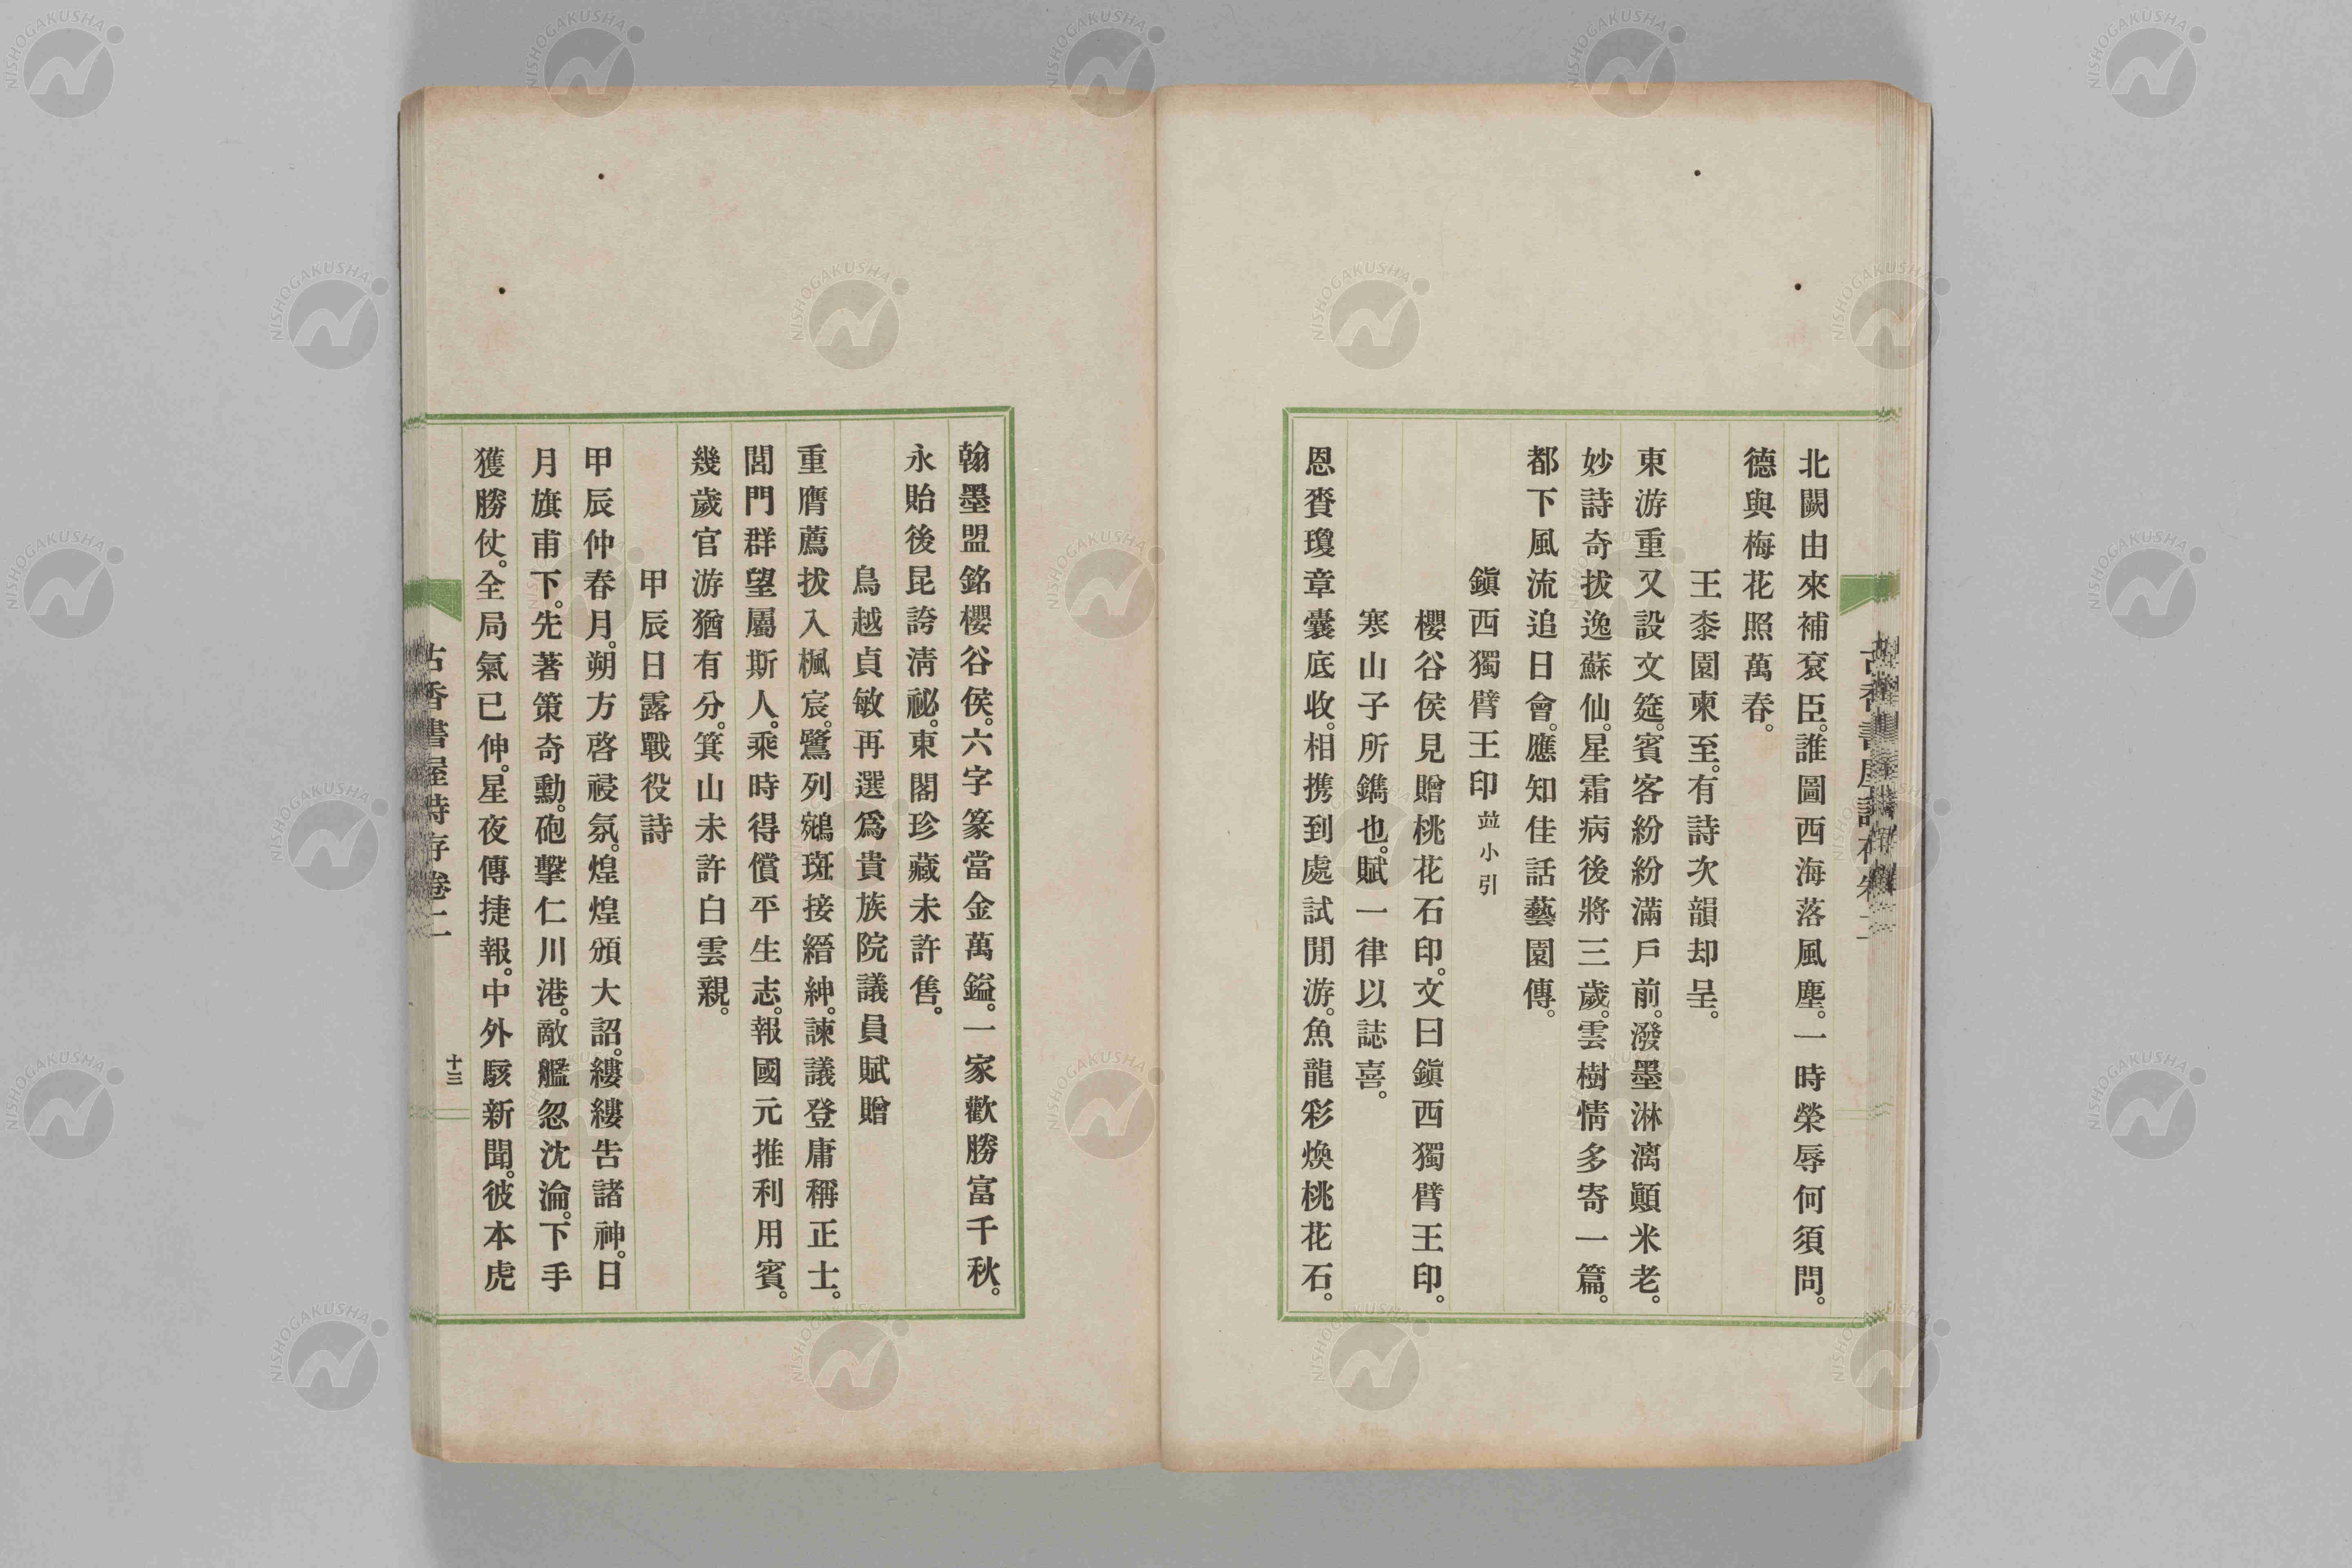 北闕由來補袞臣。誰圖西海落風塵。一時榮辱何須問。
德與梅花照萬春。
王桼園柬至。有詩次韻却呈。
東游重又設文筵。賓客紛紛滿戶前。潑墨淋漓顚米老。
妙詩奇拔逸蘇仙。星霜病後將三歲。雲樹情多寄一篇。
都下風流追日會。應知佳話藝園傳。
鎭西獨臂王印並小引
櫻谷侯見贈桃花石印。文曰鎭西獨臂王印。
寒山子所鐫也。賦一律以誌喜。
恩賚瓊章囊底收。相携到處試閒游。魚龍彩煥桃花石。
翰墨盟銘櫻谷侯。六字篆當金萬鎰。一家歡勝富千秋。
永貽後昆誇淸祕。東閣珍藏未許售。
鳥越貞敏再選爲貴族院議員賦贈
重膺薦拔入楓宸。鷺列鵷斑接縉紳。諫議登庸稱正士。
閭門群望屬斯人。乘時得償平生志。報國元推利用賓。
幾歲官游猶有分。箕山未許白雲親。
甲辰日露戰役詩
甲辰仲春月。朔方啓祲氛。煌煌頒大詔。縷縷告諸神。日
月旗甫下。先著策奇勳。砲擊仁川港。敵艦忽沈淪。下手
獲勝仗。全局氣已伸。星夜傳捷報。中外駭新聞。彼本虎
古香書屋詩存卷二
十三
NISHOGAKUSHA